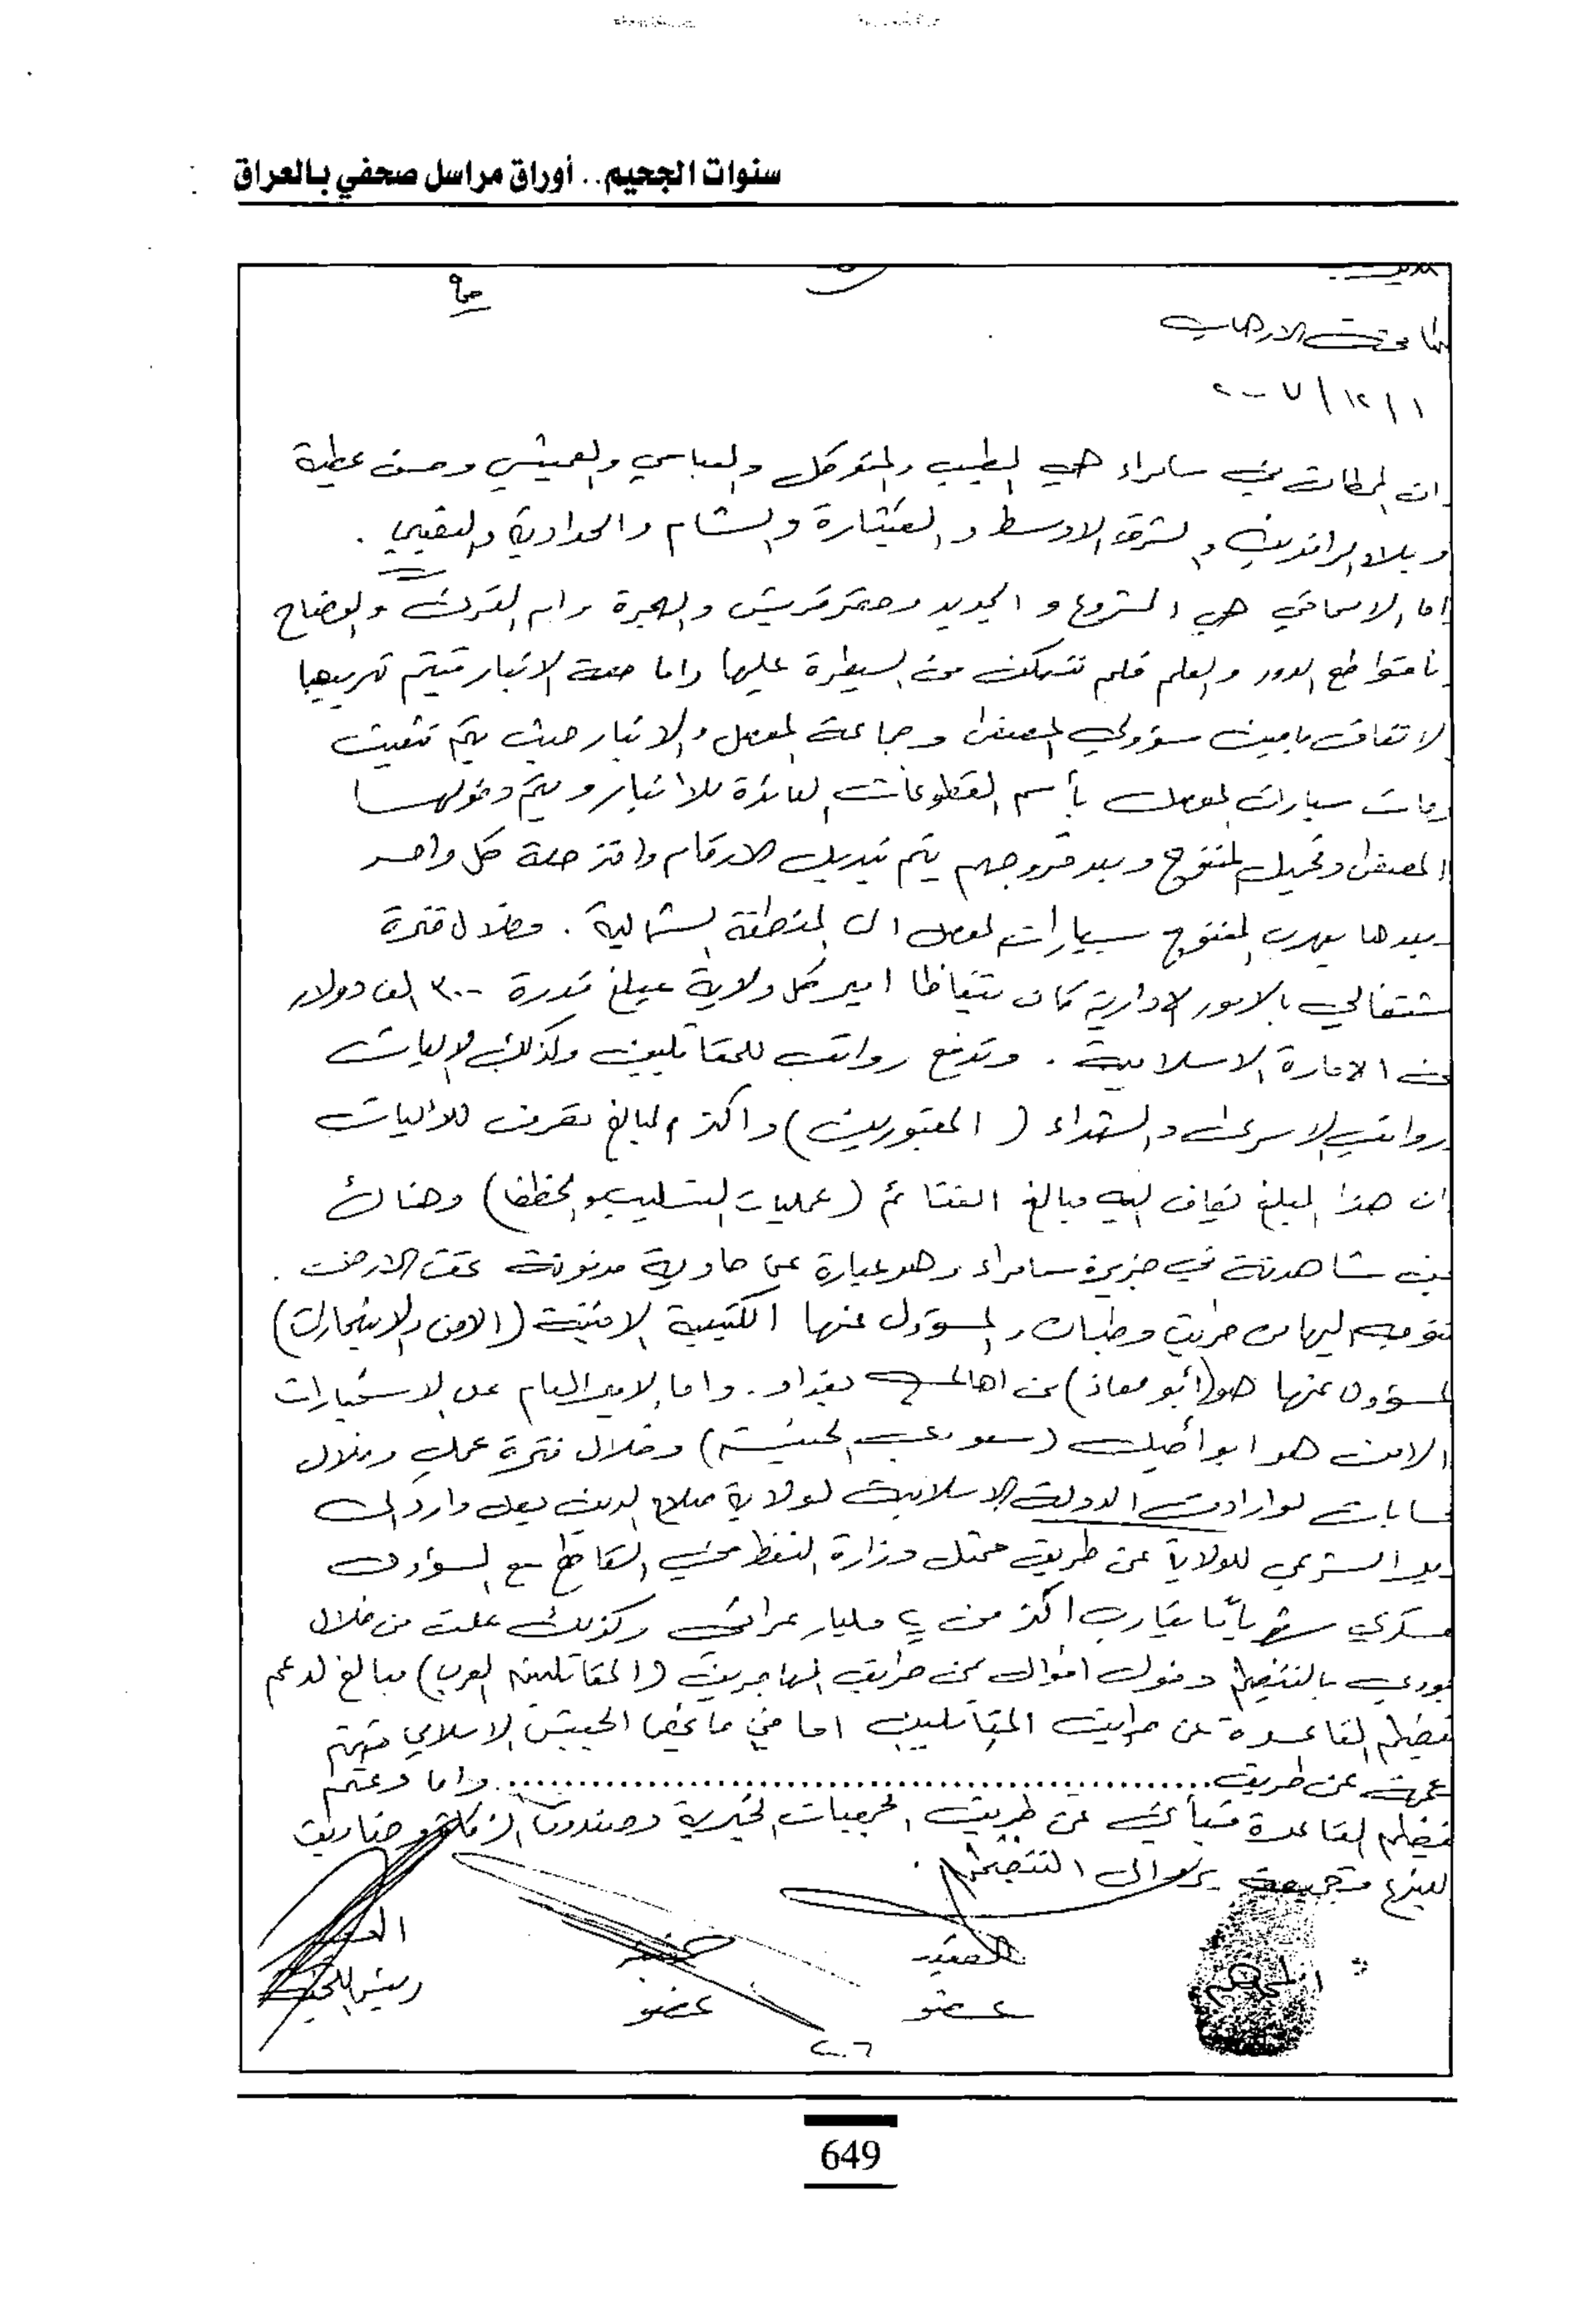 سنوات الجحيم.. أوراق مراسل صحفي بالعراق
الارهاب
٢٠٠٧/١٢/١
ان المحطات في سامراء هي الطيب والمتوكل والعباسي والعميشي وحسن عطية
وبلاد الرافدين والشرق الاوسط والقيثارة والشام والحوادية والنقيبي .
اما الاسحاقي هي المشروع والجديد وصقر قريش والهجرة وام القرى والوضاح
الدور والعلم فلم نتمكن من السيطرة عليها واما حصة الانبار فيتم تهريبها
مابين مسؤولي المصفى وجماعة الموصل والانبار حيث يتم تثبيت
سيارات الموصل بأسم القطوعات العائدة للانبار ويتم دخولها
المصفى وتحميل المنتوج وبعد خروجهم يتم تبديل الارقام واخذ حصة كل واحد
بعدها يهرب المنتوج بسيارات الموصل الى المنطقة الشمالية . وخلال فترة
اشتغالي بالامور الادارية كان يتقاضا امير كل ولاية مبلغ قدرة ٣٠٠ الف دولار
من الامارة الاسلامية . وتدفع رواتب للمقاتلين وكذلك الاليات
ورواتب الاسرى والشهداء ( المقبورين ) واكثر المبالغ تصرف للأليات
ان هذا المبلغ يضاف اليه مبالغ الغنائم ( عمليات التسليب والخطف ) وهناك
شاهدتة في جزيرة سامراء وهو عبارة عن حاوية مدفونة تحت الارض .
اليها من طريق وطبان والمسؤول عنها الكتيبة الامنية ( الامن والاستخبارات )
المسؤول عنها هو ( أبو معاذ ) من اهالي بغداد . واما الامير العام على الاستخبارات
الامن هو ابو أصيل ( سعودي الجنسية ) وخلال فترة عملي وخلال
لواردات الدولة الاسلامية لولاية صلاح الدين يصل وارد الى
الشرعي للولاية عن طريق ممثل وزارة النفط في القاطع مع المسؤول
العسكري شهرياً يقارب اكثر من ٤ مليار عراقي وكذلك علمت من خلال
بالتنظيم دخول اموال عن طريق المهاجرين ( المقاتلين العرب ) مبالغ لدعم
تنظيم القاعدة عن طريق المقاتلين اما في ما يخص الجيش الاسلامي فيتم
عن طريق .......................................... واما دعم
تنظيم القاعدة فيأتي عن طريق الجمعيات الخيرية وصندوق الزكاة
الى التنظيم .
المتهم
العقيد
عضو
عضو
رئيس اللجنة
٢٠٦
649